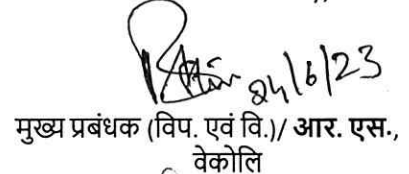 24/6/23
मुख्य प्रबंधक (विप. एवं वि.)/ आर. एस.,
वेकोलि